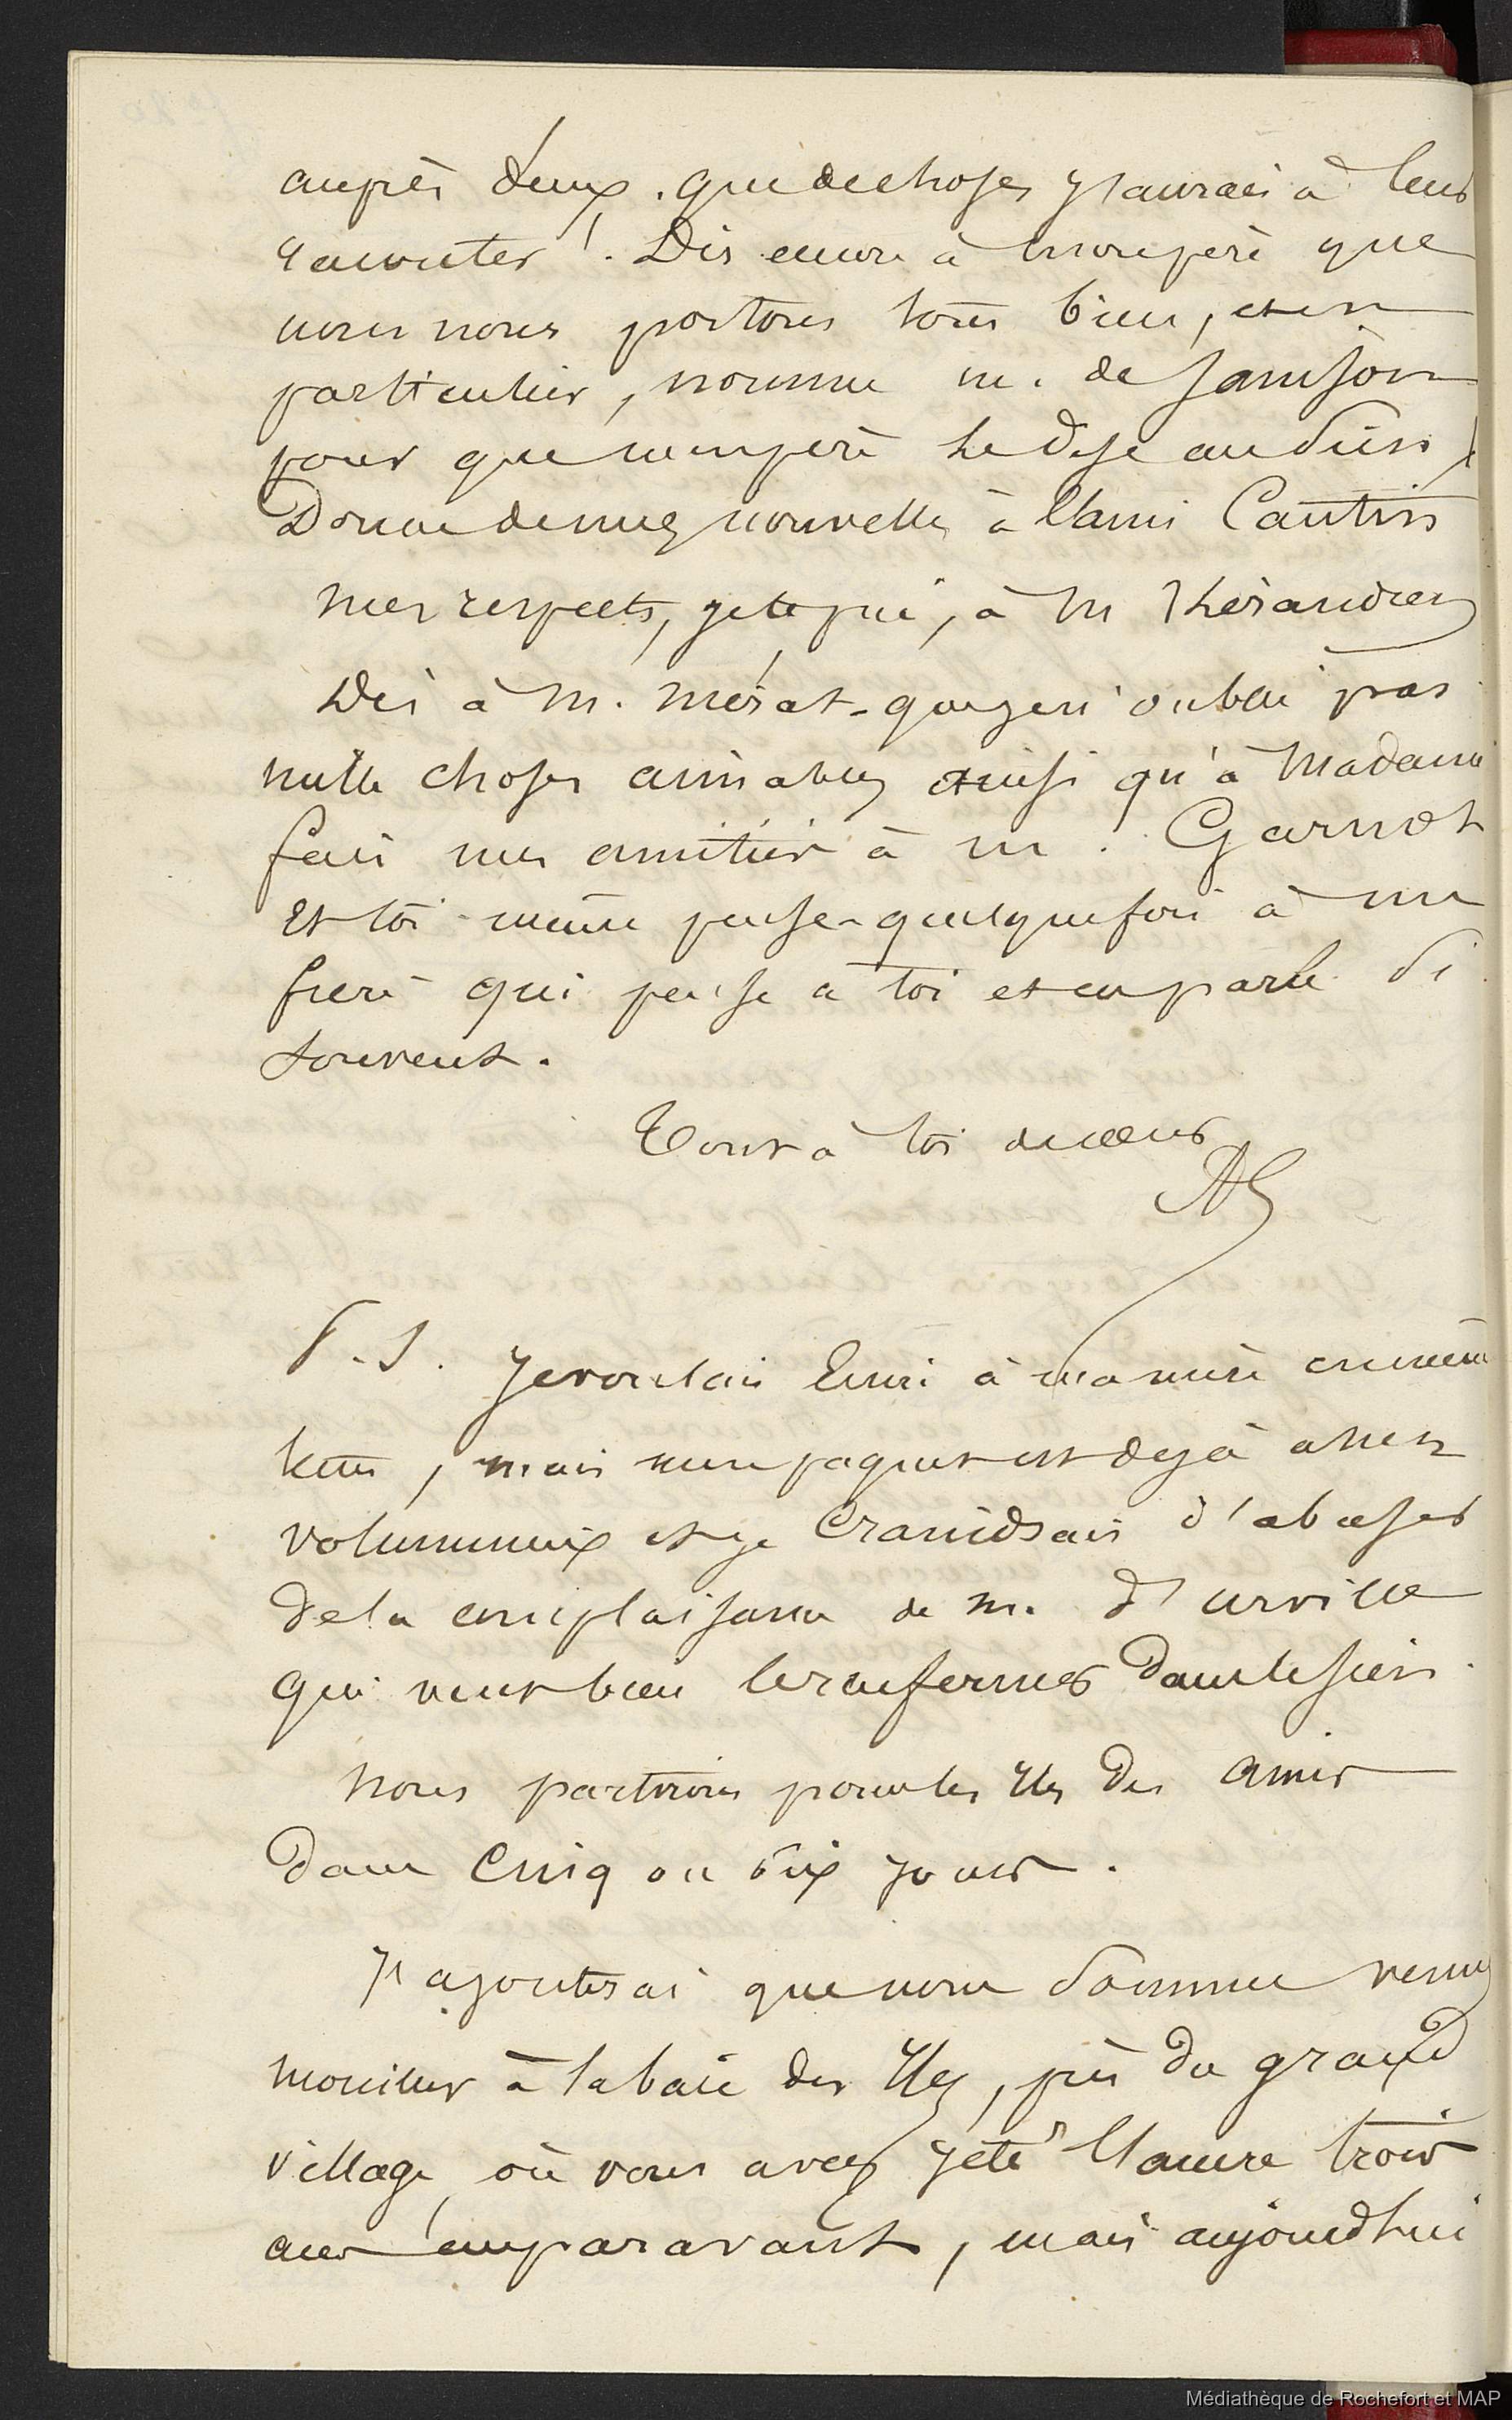 auprès d'eux. que de choses j'aurai à leur
raconter ! . Dis encore à mon père que
nous nous portons tous bien, et en
particulier, nomme m. de Sainson
pour que mon père le dise au sien
Donne de mes nouvelles à l'ami Cantin
mes respects, je te prie, à M
Dis à M. Mérat - que je n'oublie pas
mille choses aimables ainsi qu'à Madame
fais mes amitiés à m. Garnot
Et toi même pense - quelquefois à un
frère qui pense à toi et en parle si
souvent.
Tout à toi de cœur
P. S. Je voulais écrire à ma mère
lettre, mais mon paquet est déjà assez
volumineux et je craindrais d'abuser
de la complaisance de m. d'urville
qui veut bien le renfermer dans le sien.
nous partirons pour les Iles des amis
dans cinq ou six jours.
J'ajouterai que nous sommes venus
mouiller à la baie des Iles, près du grand
village, où vous avez jeté l'ancre trois
ans auparavant, mais aujourd'hui
Médiathèque de Rochefort et MAP